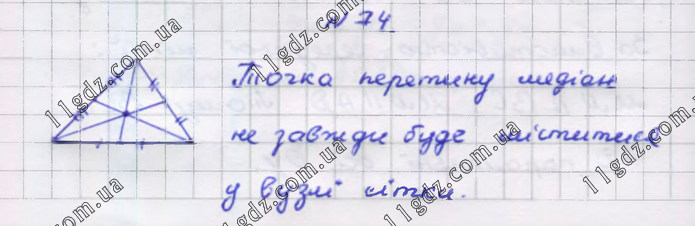 N 74.
Точка перетину медіан
не завжди буде міститися
у вузлі сітки.
11gdz.com.ua
11gdz.com.ua
11gdz.com.ua
11gdz.com.ua
11gdz.com.ua
11gdz.com.ua